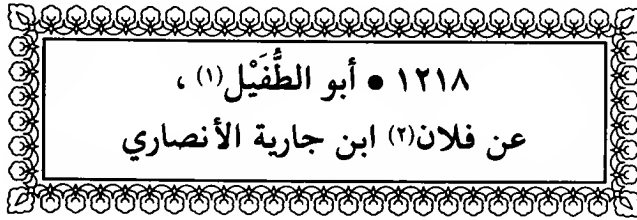 ١٢١٨ ● أبو الطُّفَيْل(١) ،
عن فلان(٢) ابن جارية الأنصاري